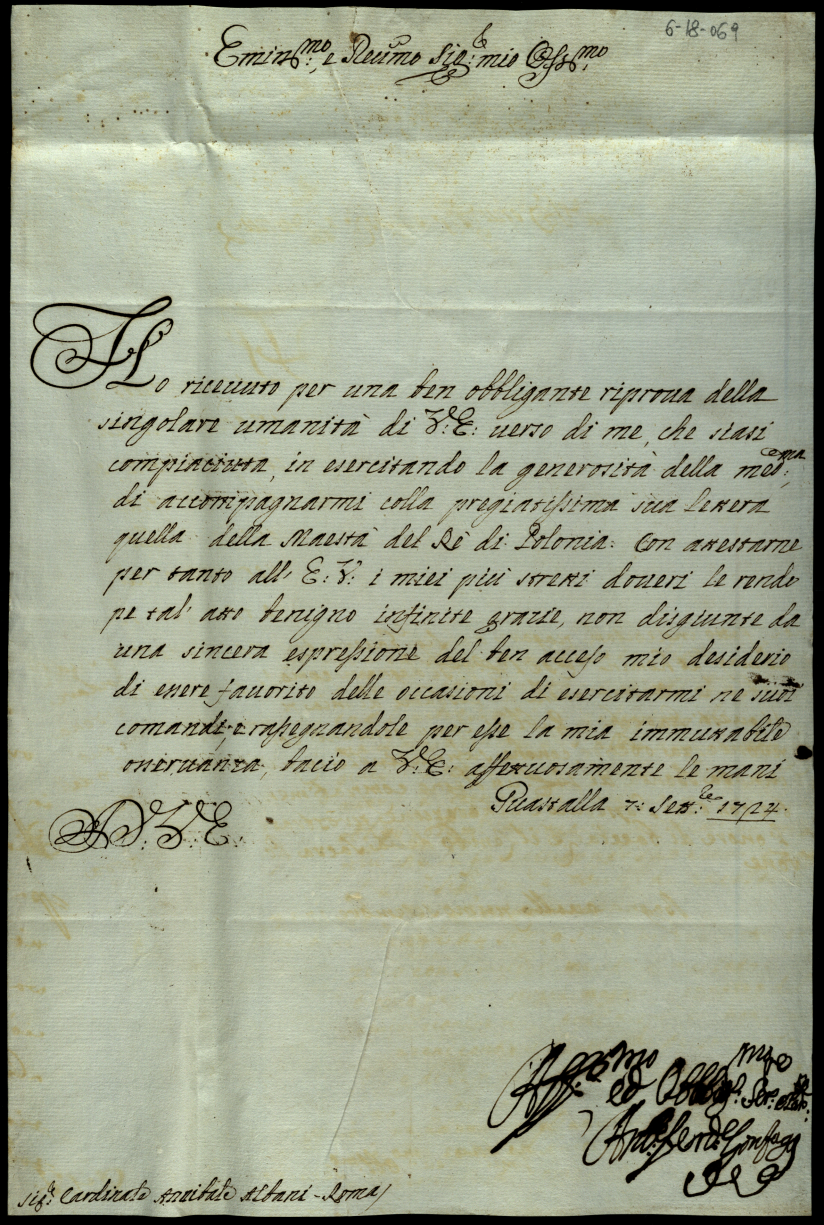 6-18-069
Emin.mo, e Reu.mo Sig.r mio Oss.mo
Ho riceuuto per una ben obbligante riproua della
singolare umanità di V: E: uerso di me, che siasi
compiaciuta, in esercitando la generosità della med.ma,
di accompagnarmi colla pregiatissima sua lettera
quella della Maestà del Rè di Polonia. Con attestarne
per tanto all' E: V: i miei più stretti doueri le rendo
pe tal' atto benigno infinite grazie, non disgiunte da
una sincera espressione del ben acceso mio desiderio
di essere fauorito delle occasioni di esercitarmi ne suoi
comandi, e rassegnandole per esse la mia immutabile
osseruanza, bacio a V: E: affettuosamente le mani
Guastalla 7: Sett.re 1724.
D. V. E.
Aff.mo ed Obblig.mo Ser.re
Ant.o Ferd.o Gonzaga
Sig.r Cardinale Annibale Albani - Roma